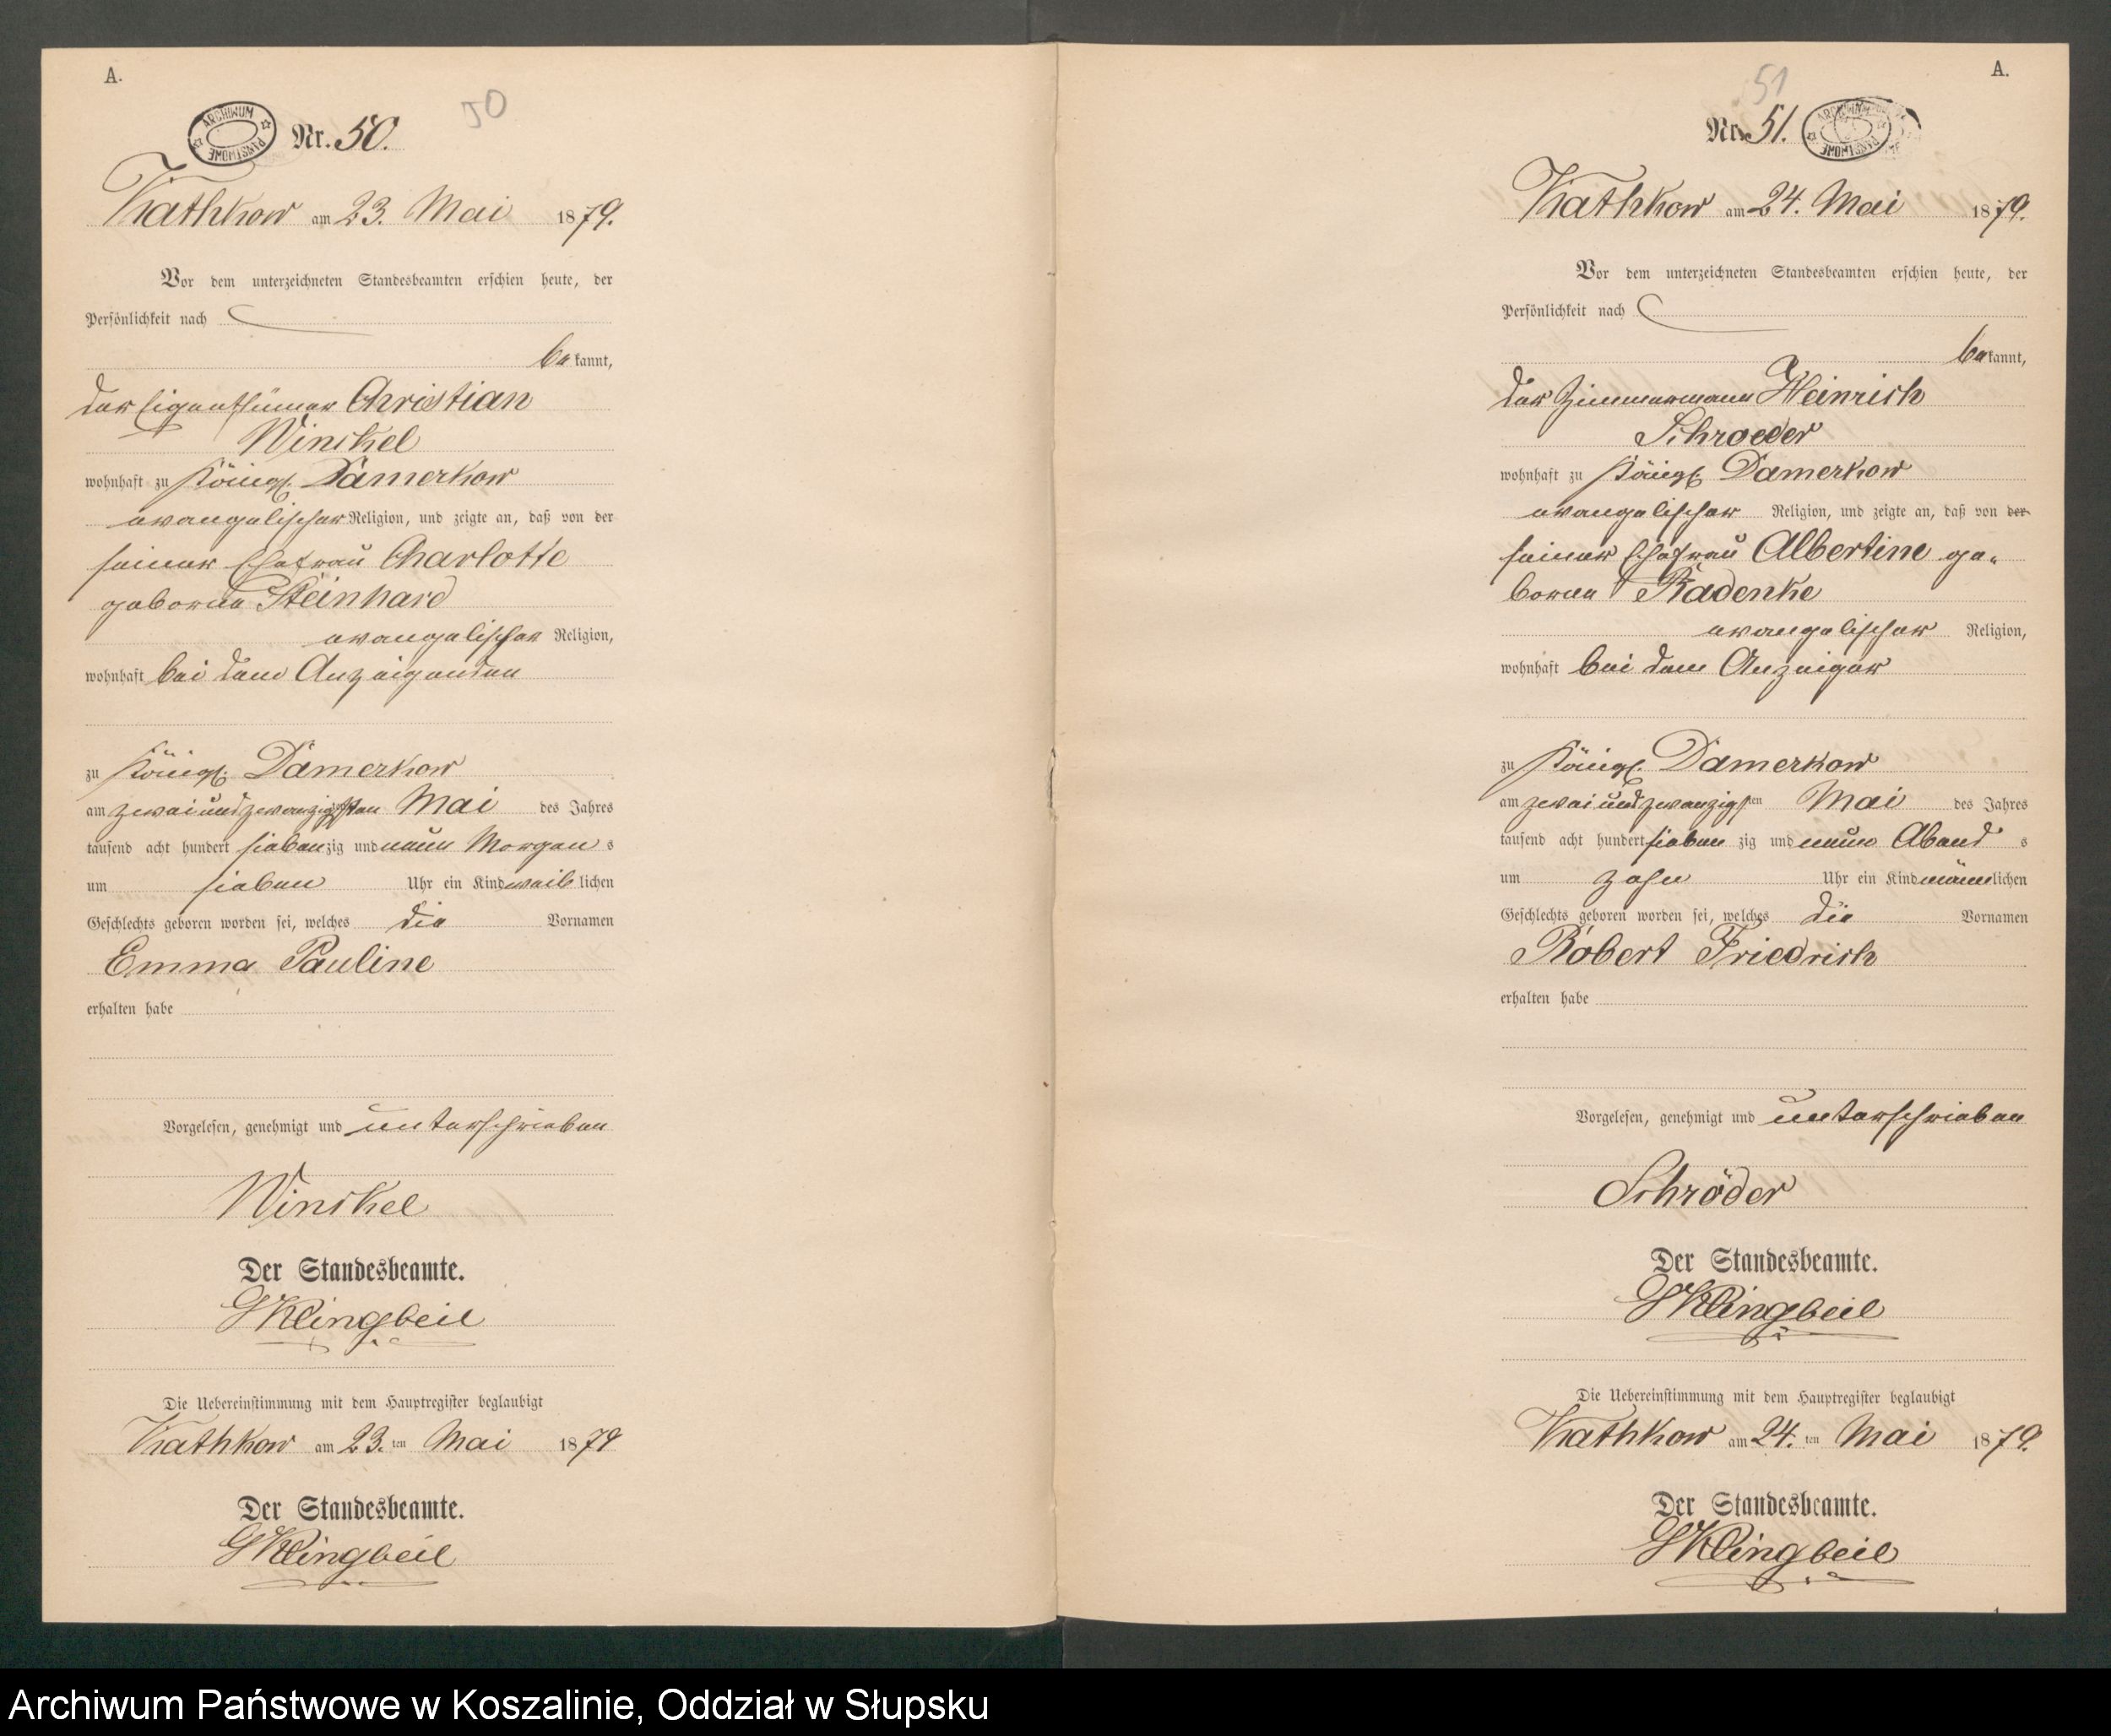 A.
ARCHIWUM PAŃSTWOWE
Nr. 50.
50
Kathkow am 23. Mai 1879.
Vor dem unterzeichneten Standesbeamten erschien heute, der
Persönlichkeit nach
bekannt,
der Eigenthümer Christian
Winckel
wohnhaft zu Königl. Damerkow
evangelischer Religion, und zeigte an, daß von der
seiner Ehefrau Charlotte
geborne Steinhard
evangelischer Religion,
wohnhaft bei dem Anzeigenden
zu Königl. Damerkow
am zweiundzwanzigsten Mai des Jahres
tausend acht hundert siebenzig und neun Morgens
um sieben Uhr ein Kind weiblichen
Geschlechts geboren worden sei, welches die Vornamen
Emma Pauline
erhalten habe
Vorgelesen, genehmigt und unterschrieben
Winckel
Der Standesbeamte.
Klingbeil
Die Uebereinstimmung mit dem Hauptregister beglaubigt
Kathkow am 23.ten Mai 1879
Der Standesbeamte.
Klingbeil
A.
51
Nr. 51.
ARCHIWUM PAŃSTWOWE
Kathkow am 24. Mai 1879.
Vor dem unterzeichneten Standesbeamten erschien heute, der
Persönlichkeit nach
bekannt,
der Zimmermann Heinrich
Schroeder
wohnhaft zu Königl. Damerkow
evangelischer Religion, und zeigte an, daß von der
seiner Ehefrau Albertine ge-
borne Radenke
evangelischer Religion,
wohnhaft bei dem Anzeiger
zu Königl. Damerkow
am zweiundzwanzigsten Mai des Jahres
tausend acht hundert siebenzig und neun Abends
um zehn Uhr ein Kind männlichen
Geschlechts geboren worden sei, welches die Vornamen
Robert Friedrich
erhalten habe
Vorgelesen, genehmigt und unterschrieben
Schröder
Der Standesbeamte.
Klingbeil
Die Uebereinstimmung mit dem Hauptregister beglaubigt
Kathkow am 24.ten Mai 1879.
Der Standesbeamte.
Klingbeil
Archiwum Państwowe w Koszalinie, Oddział w Słupsku